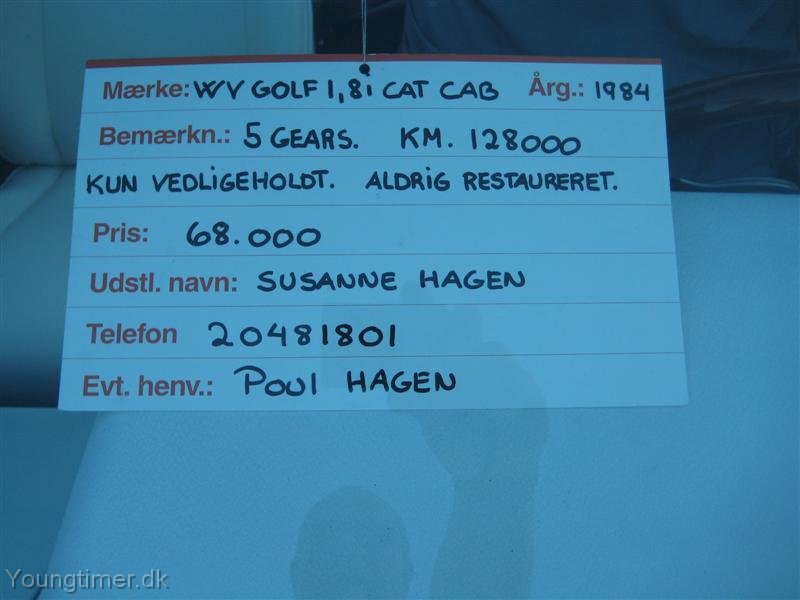 Mærke: WV GOLF 1,8i CAT CAB Årg.: 1984
Bemærkn.: 5 GEARS. KM. 128000
KUN VEDLIGEHOLDT. ALDRIG RESTAURERET.
Pris: 68.000
Udstl. navn: SUSANNE HAGEN
Telefon 20481801
Evt. henv.: POUl HAGEN
Youngtimer.dk